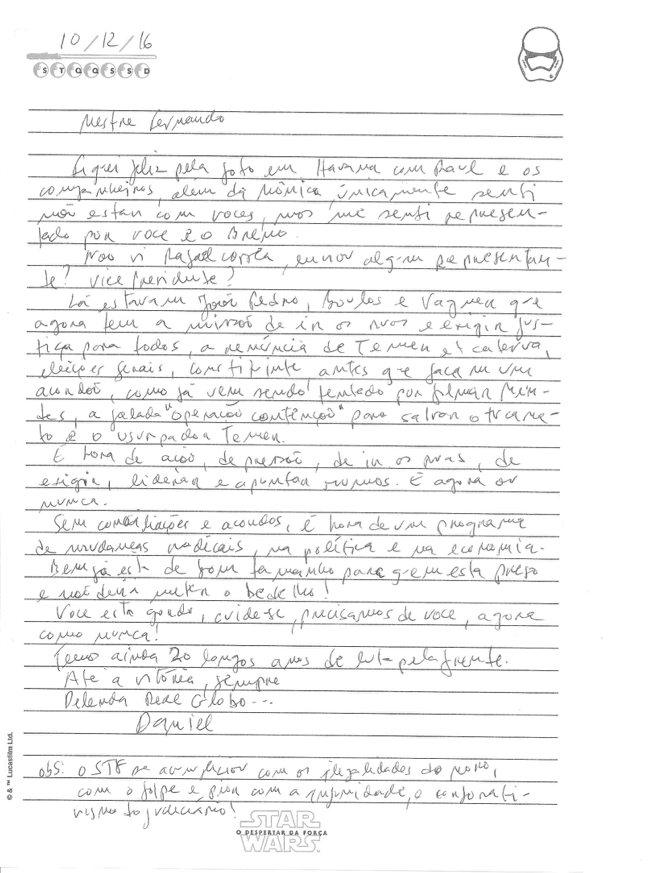 10/12/16
S T Q Q S S D
Mestre Fernando
Fiquei feliz pela foto em Havana com Raul e os
companheiros, além da Mônica, únicamente senti
não estar com voces, mas me senti represen-
tado por voce e o Breno.
Nao vi Rafael Correa, enviou algum representan-
te? Vice presidente?
Lá estavam João Pedro, Boulos e Vagner que
agora tem a missão de ir as ruas e exigir jus-
tiça para todos, a renúncia de Temer et caterva,
eleições gerais, constituinte antes que façam um
acordão, como já vem sendo tentado por Gilmar Men-
des, a falada "operação contenção" para salvar o
e o usurpador Temer.
É hora de ação, de pressão, de ir as ruas, de
exigir, liderar e apontar rumos. É agora ou
nunca.
Sem conciliações e acordos, é hora de um programa
de mudanças radicais, na política e na economia.
Bem já está de bom tamanho para quem esta preso
e não devia meter o bedelho!
Voce esta gordo, cuide-se, precisamos de voce, agora
como nunca!
Temos ainda 20 longos anos de luta pela frente.
Até a vitória, sempre
Delenda Rede Globo...
Daniel
obs: o STF se acumpliciou com as ilegalidades do Moro,
com o golpe e pior com a impunidade, o corporati-
vismo do judiciário!
STAR
O DESPERTAR DA FORÇA
WARS
© & ™ Lucasfilm Ltd.